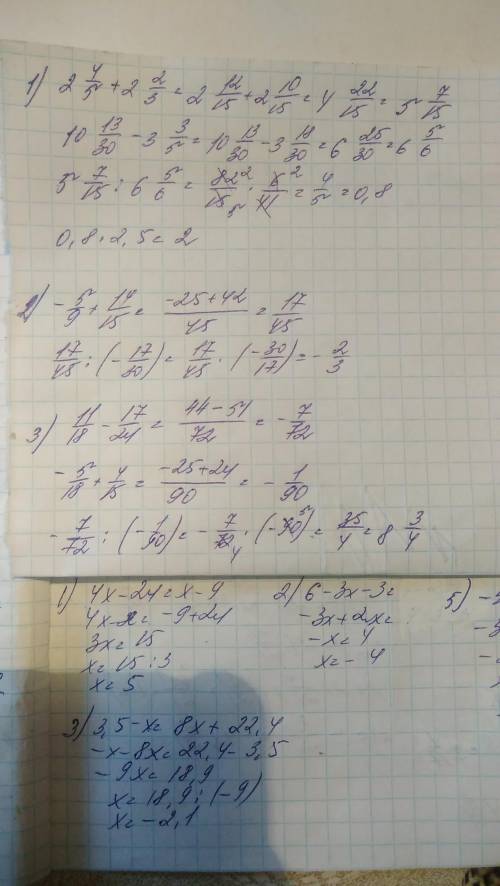 1) 2 4/5 + 2 2/3 = 2 12/15 + 2 10/15 = 4 22/15 = 5 7/15
10 13/30 - 3 3/5 = 10 13/30 - 3 18/30 = 6 25/30 = 6 5/6
5 7/15 : 6 5/6 = 82/15 · 6/41 = 4/5 = 0,8
0,8 · 2,5 = 2
2) - 5/9 + 14/15 = (-25+42)/45 = 17/45
17/45 : (- 17/30) = 17/45 · (- 30/17) = - 2/3
3) 11/18 - 17/24 = (44-51)/72 = - 7/72
- 5/18 + 4/15 = (-25+24)/90 = - 1/90
- 7/72 : (- 1/90) = - 7/72 · (-90) = 35/4 = 8 3/4
1) 4x-24=x-9
4x-x= -9+24
3x=15
x=15:3
x=5
2) 6-3x-3=
-3x+2x=
-x=4
x=-4
5)
3) 3,5-x= 8x+22,4
-x-8x=22,4-3,5
-9x=18,9
x=18,9:(-9)
x=-2,1